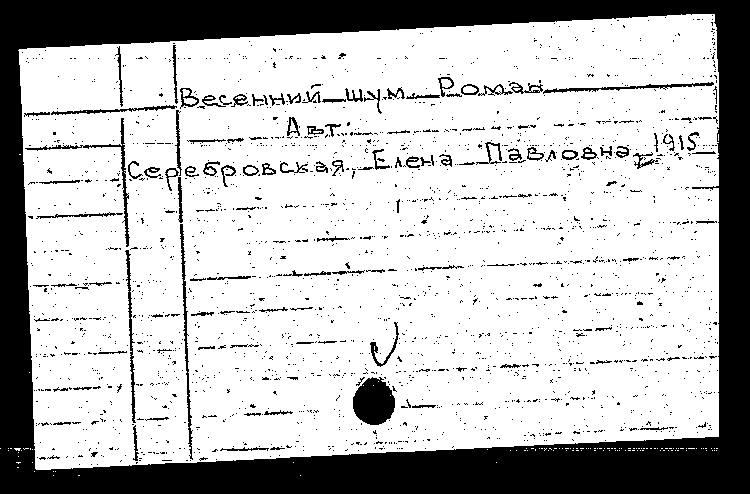 Весенний шум. Роман
Авт.:
Серебровская, Елена Павловна, 1915